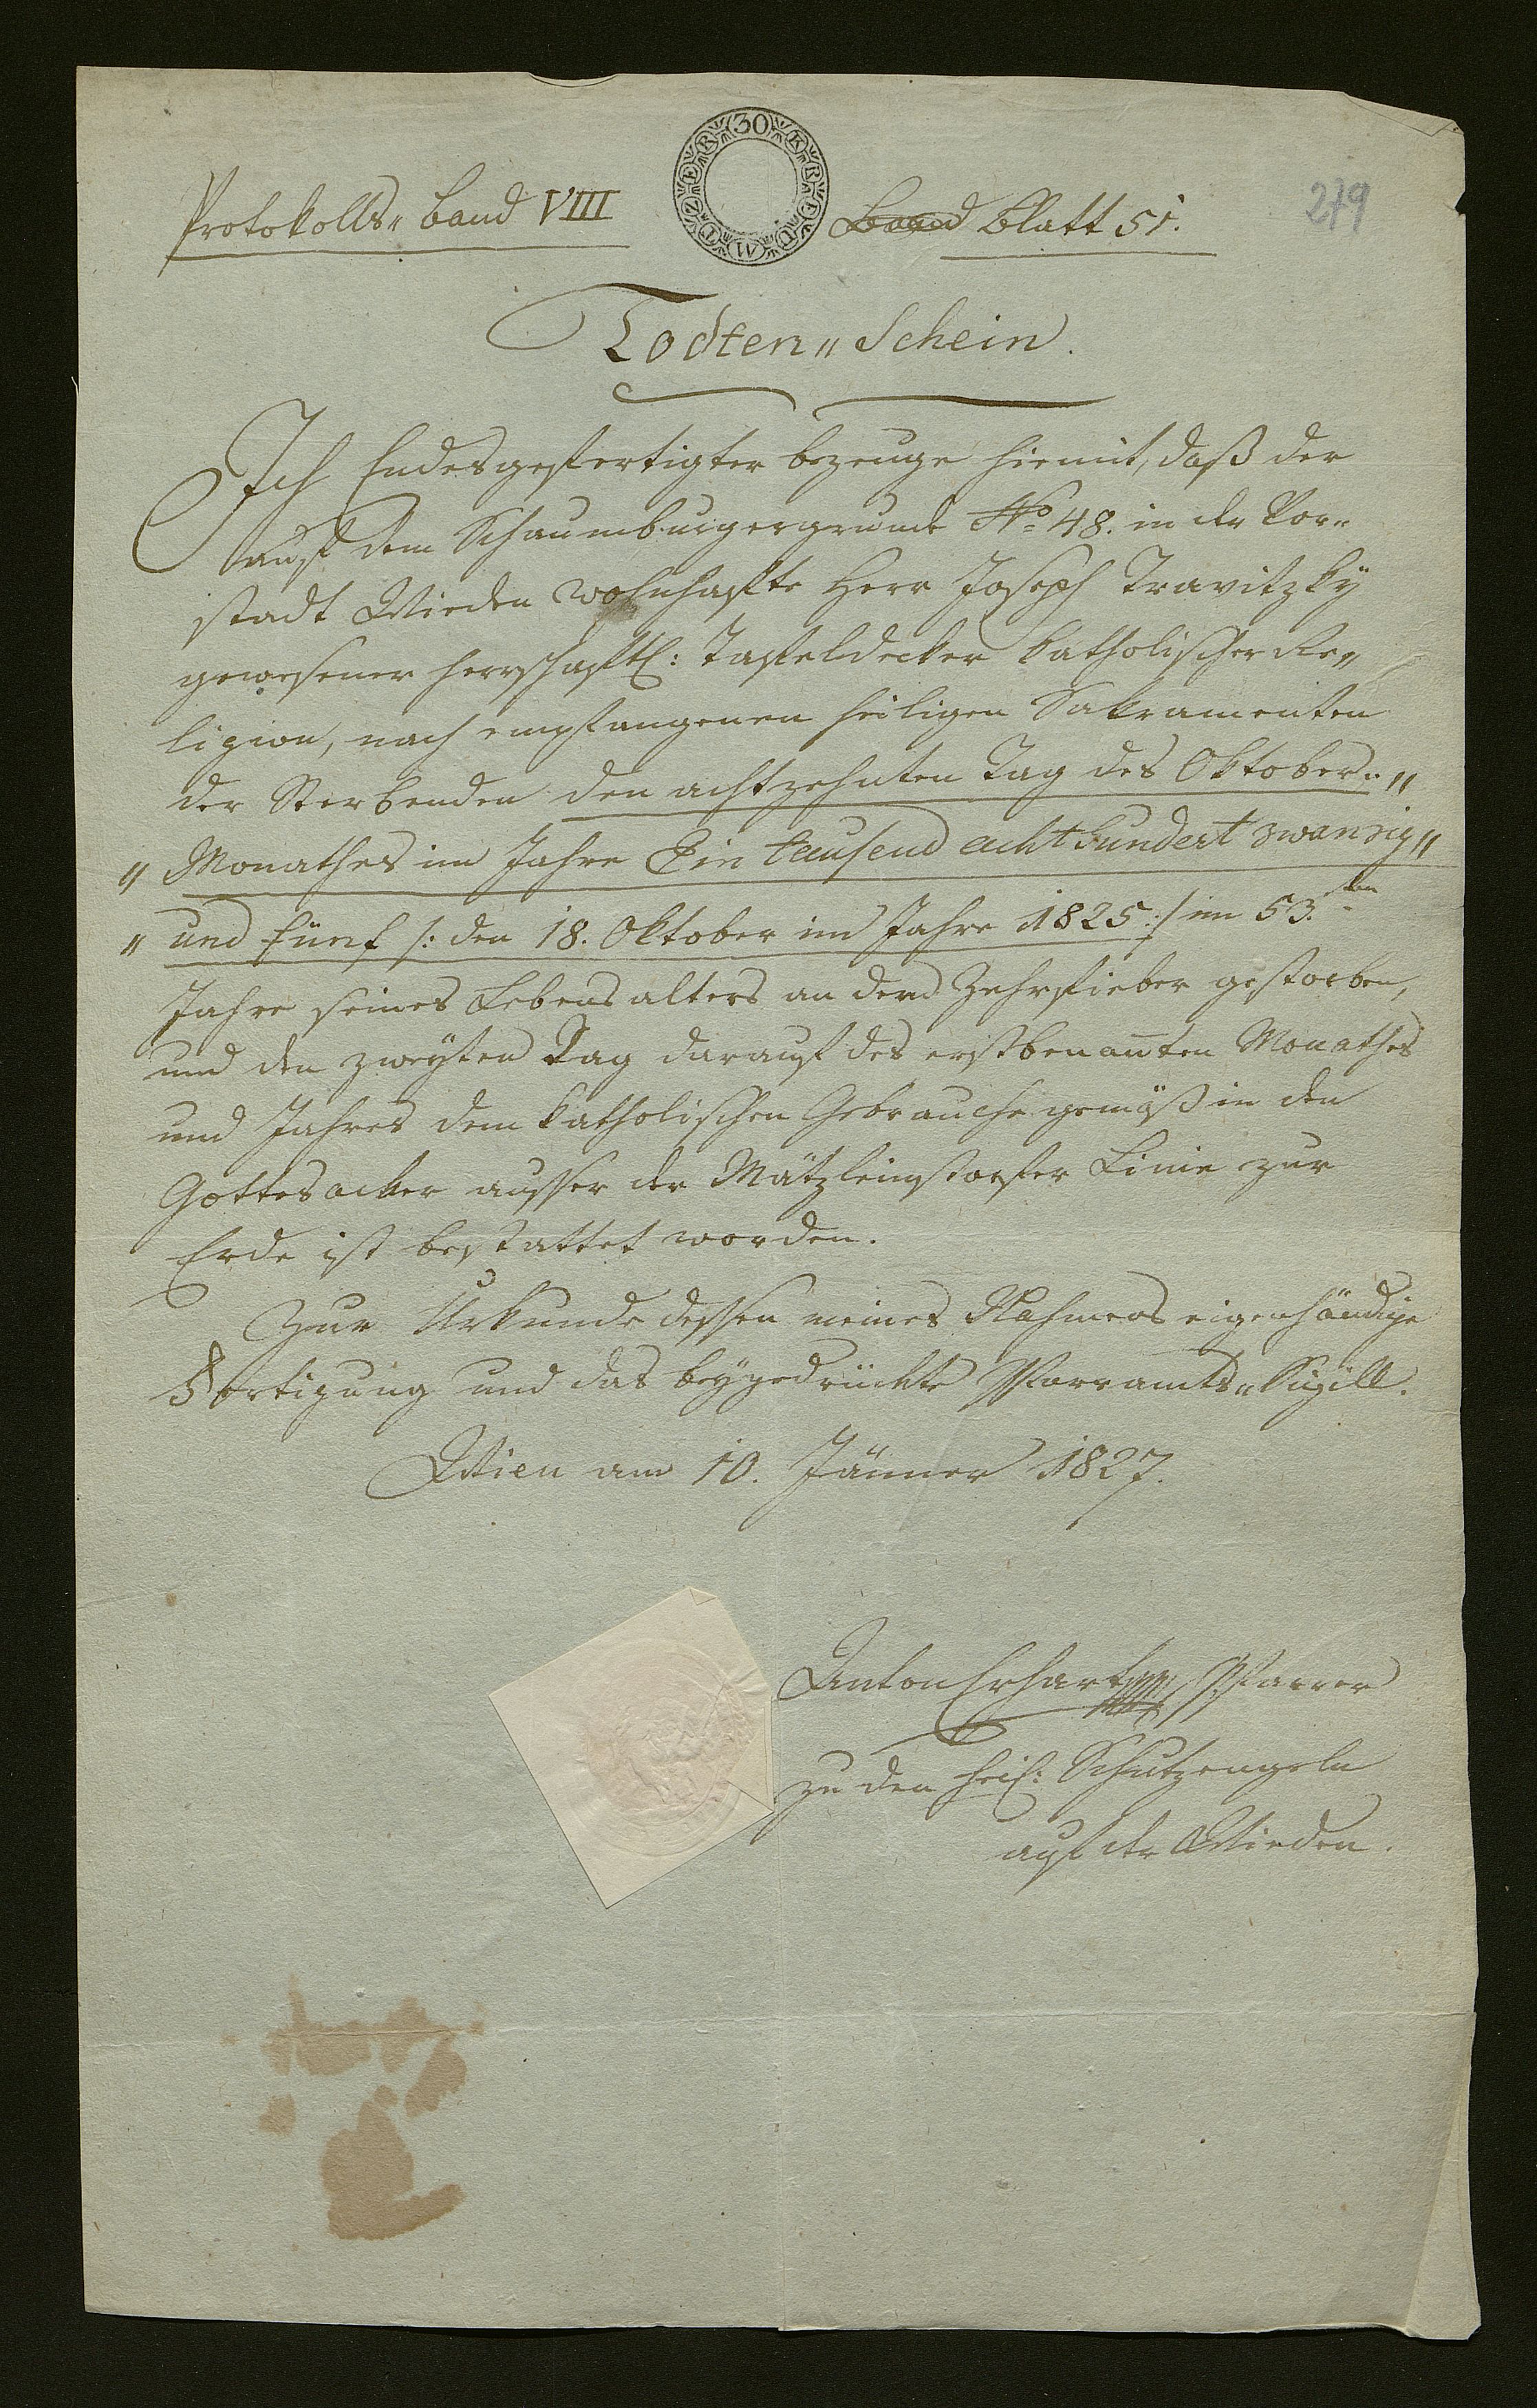 30 KREUTZER W
279
Protokolls„ Band VIII Band Blatt 51.
Todten„Schein.
Ich Endesgefertigter bezeuge hiemit, daß der
auf dem Schaumburgergrunde No 48. in der Vor„
stadt Wieden wohnhafte Herr Joseph Travitzky
gewesener herrschaftl: Tafeldecker katholischer Re„
ligion, nach empfangenen heiligen Sakramenten
der Sterbenden den achtzehnten Tag des Oktober„ „
„ Monathes im Jahre Ein tausend acht hundert zwanzig „
„ und fünf /: den 18. Oktober im Jahre 1825 :/ im 53.ten
Jahre seines Lebensalters an dem Zehrfieber gestorben,
und den zweyten Tag darauf des erstbenan̄ten Monathes
und Jahres dem katholischen Gebrauche gemäß in den
Gottesacker ausser der Mätzleinstorfer Linie zur
Erde ist bestattet worden.
Zur Urkunde dessen meines Nahmens eigenhändige
Fertigung und das beygedrückte Pfarramts„Sigill.
Wien am 10. Jänner 1827.
Anton Erhart Pfarrer
zu den heil: Schutzengeln
auf der Wieden.